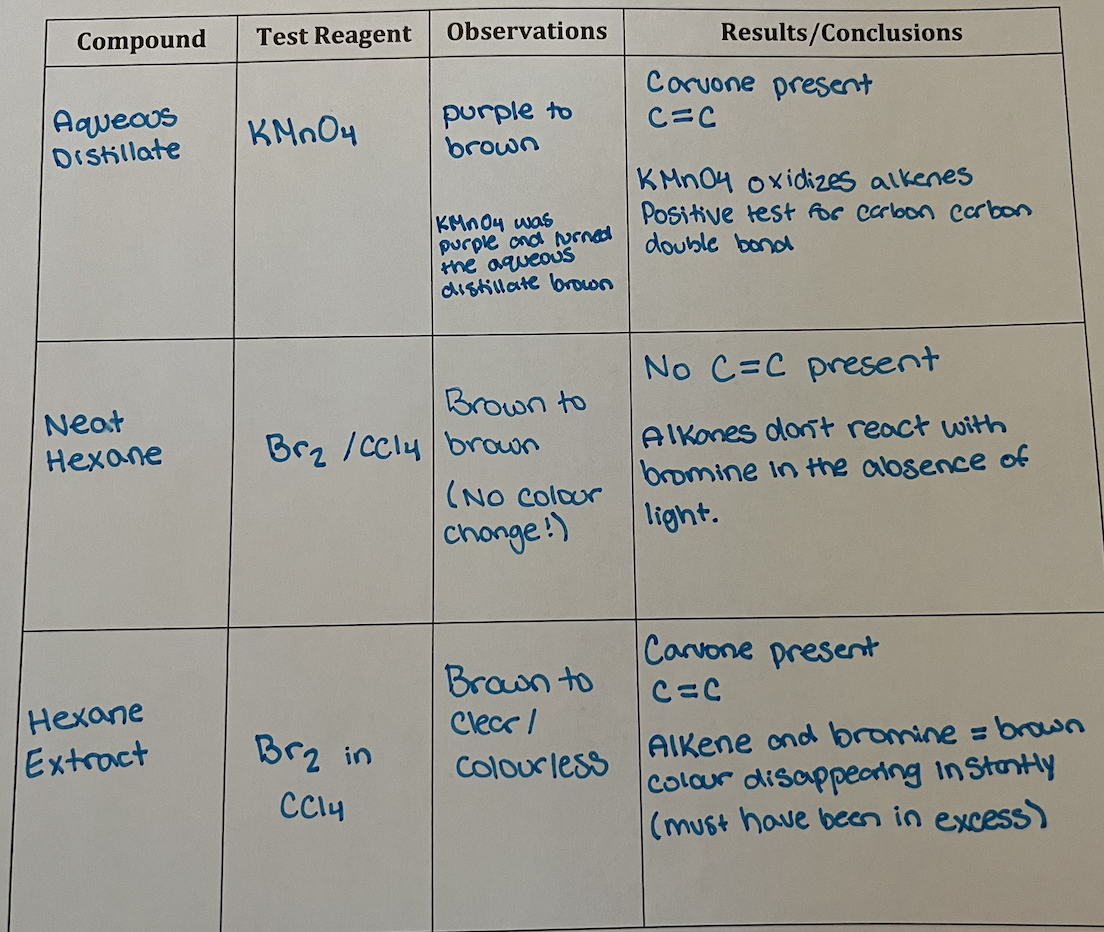 Compound Test Reagent Observations Results/Conclusions
Aqueous
Distillate
KMnO4
purple to
brown
KMnO4 was
purple and turned
the aqueous
distillate brown
Carvone present
C=C
KMnO4 oxidizes alkenes
Positive test for carbon carbon
double bond
Neat
Hexane
Br2 /CCl4
Brown to
brown
(No colour
change!)
No C=C present
Alkanes don't react with
bromine in the absence of
light.
Hexane
Extract
Br2 in
CCl4
Brown to
Clear/
colourless
Carvone present
C=C
Alkene and bromine = brown
colour disappearing instantly
(must have been in excess)